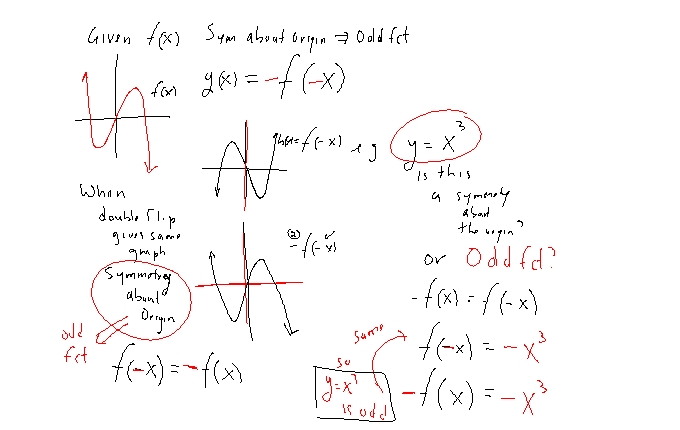 Given f(x)
Sym about origin ⇒ Odd fct
f(x)
g(x) = -f(-x)
h(x)= f(-x)
e g
y = x³
is this
a symmetry
about
the origin?
or Odd fct?
When
double flip
gives same
graph
Symmetry
about
Origin
odd
fct
② -f(-x)
f(-x) = -f(x)
-f(x) = f(-x)
f(-x) = -x³
same
-f(x) = -x³
so
y=x³
is odd